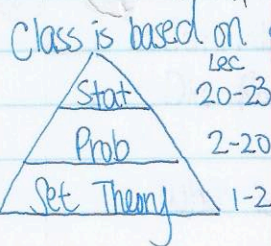 Class is based on
Lec
Stat 20-23
Prob 2-20
Set Theory 1-2